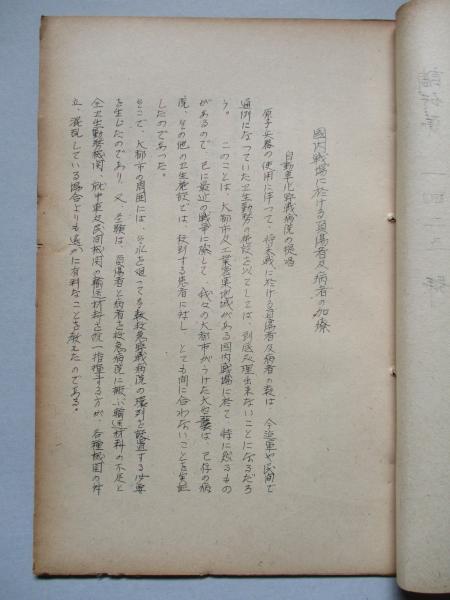 國内戦場に於ける負傷者及病者の加療
自動車化野戦病院の提唱
原子兵器の使用に伴って、将来戦に於ける負傷者及病者の数は、今迄軍や民間で
通例になっていた卫生勤務の施設を以てしては、到底処理出来ないことになるだろ
う。このことは、大都市及工業営業地域がある国内戦場に於て特に然るもの
があるので、已に最近の戦争に際して、我々の大都市がうけた大空襲は、已存の病
院、その他の卫生施設では、殺到する患者に対し、とても間に合わないことを実証
したのであった。
そこで、大都市の周囲には、を追っても救急野戦病院の環列を設置する必要
を生じたのであり、又、経験は、負傷者と病者を救急病院に搬ぶ輸送材料の不足と
全卫生勤務機関、就中軍及民間機関の輸送材料を統一指揮する方が、各種機関の併
立、混乱している場合よりも遙かに有利なことを教えたのである。